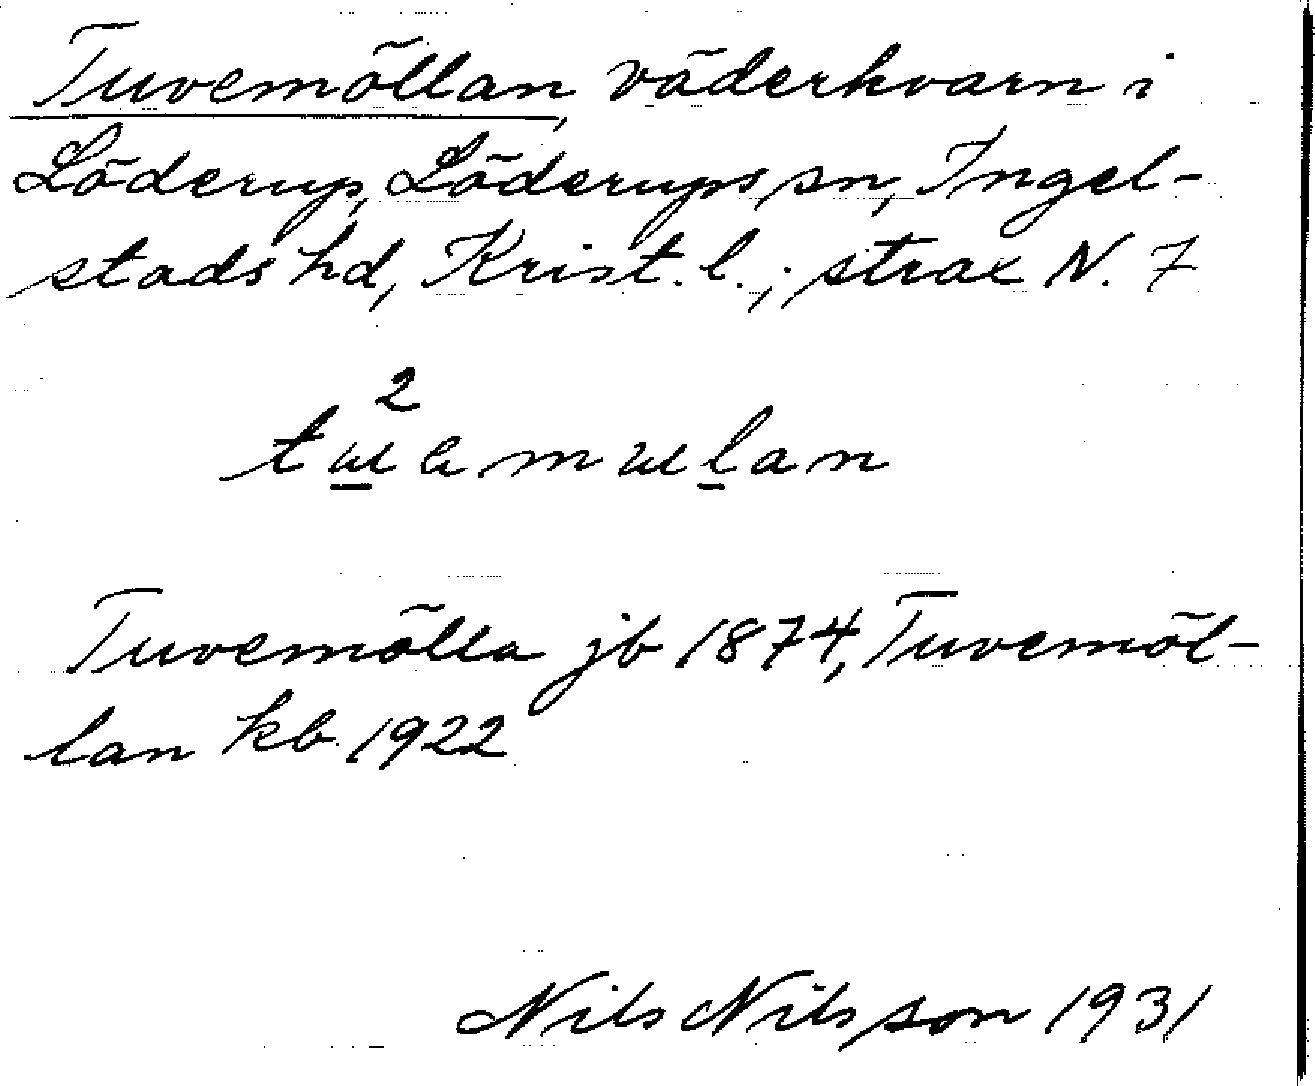 Tuvemöllan, väderkvarn i
Löderup, Löderups sn, Ingel-
stads hd, Krist. l.; strax N. 7
Tuvemölla jb 1874, Tuvemöl-
lan kb. 1922
Nils Nilsson 1931